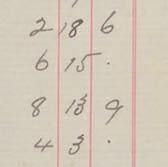 2 18 6
6 15 .
8 13 9
4 3 .